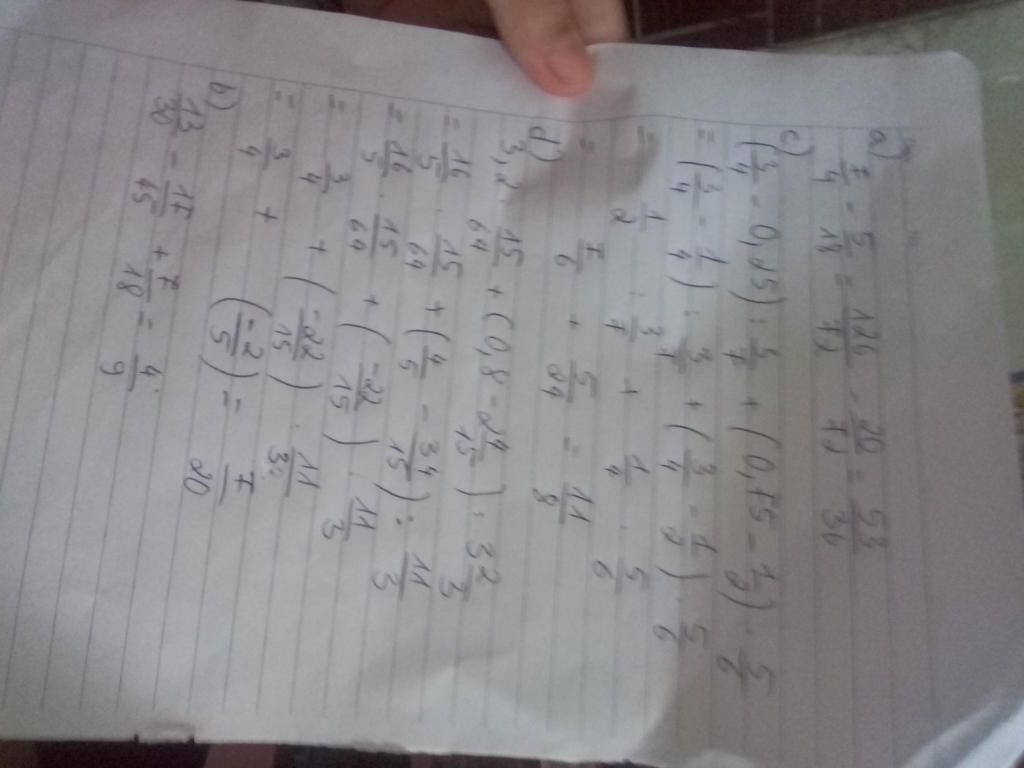 a)
7/4 - 5/18 = 126/72 - 20/72 = 53/36
c)
(3/4 - 0,25) : 5/7 + (0,75 - 1/2) . 5/6
= (3/4 - 1/4) : 3/7 + (3/4 - 1/2) . 5/6
= 1/2 : 3/7 + 1/4 . 5/6
= 7/6 + 5/24 = 11/8
d)
3,2 . 15/64 + (0,8 - 24/15) : 3 2/3
= 16/5 . 15/64 + (4/5 - 34/15) : 11/3
= 16/5 . 15/64 + (-22/15) . 11/3
= 3/4 + (-22/15) . 11/3
= 3/4 + (-2/5) = 7/20
b)
13/30 - 17/45 + 7/18 = 4/9